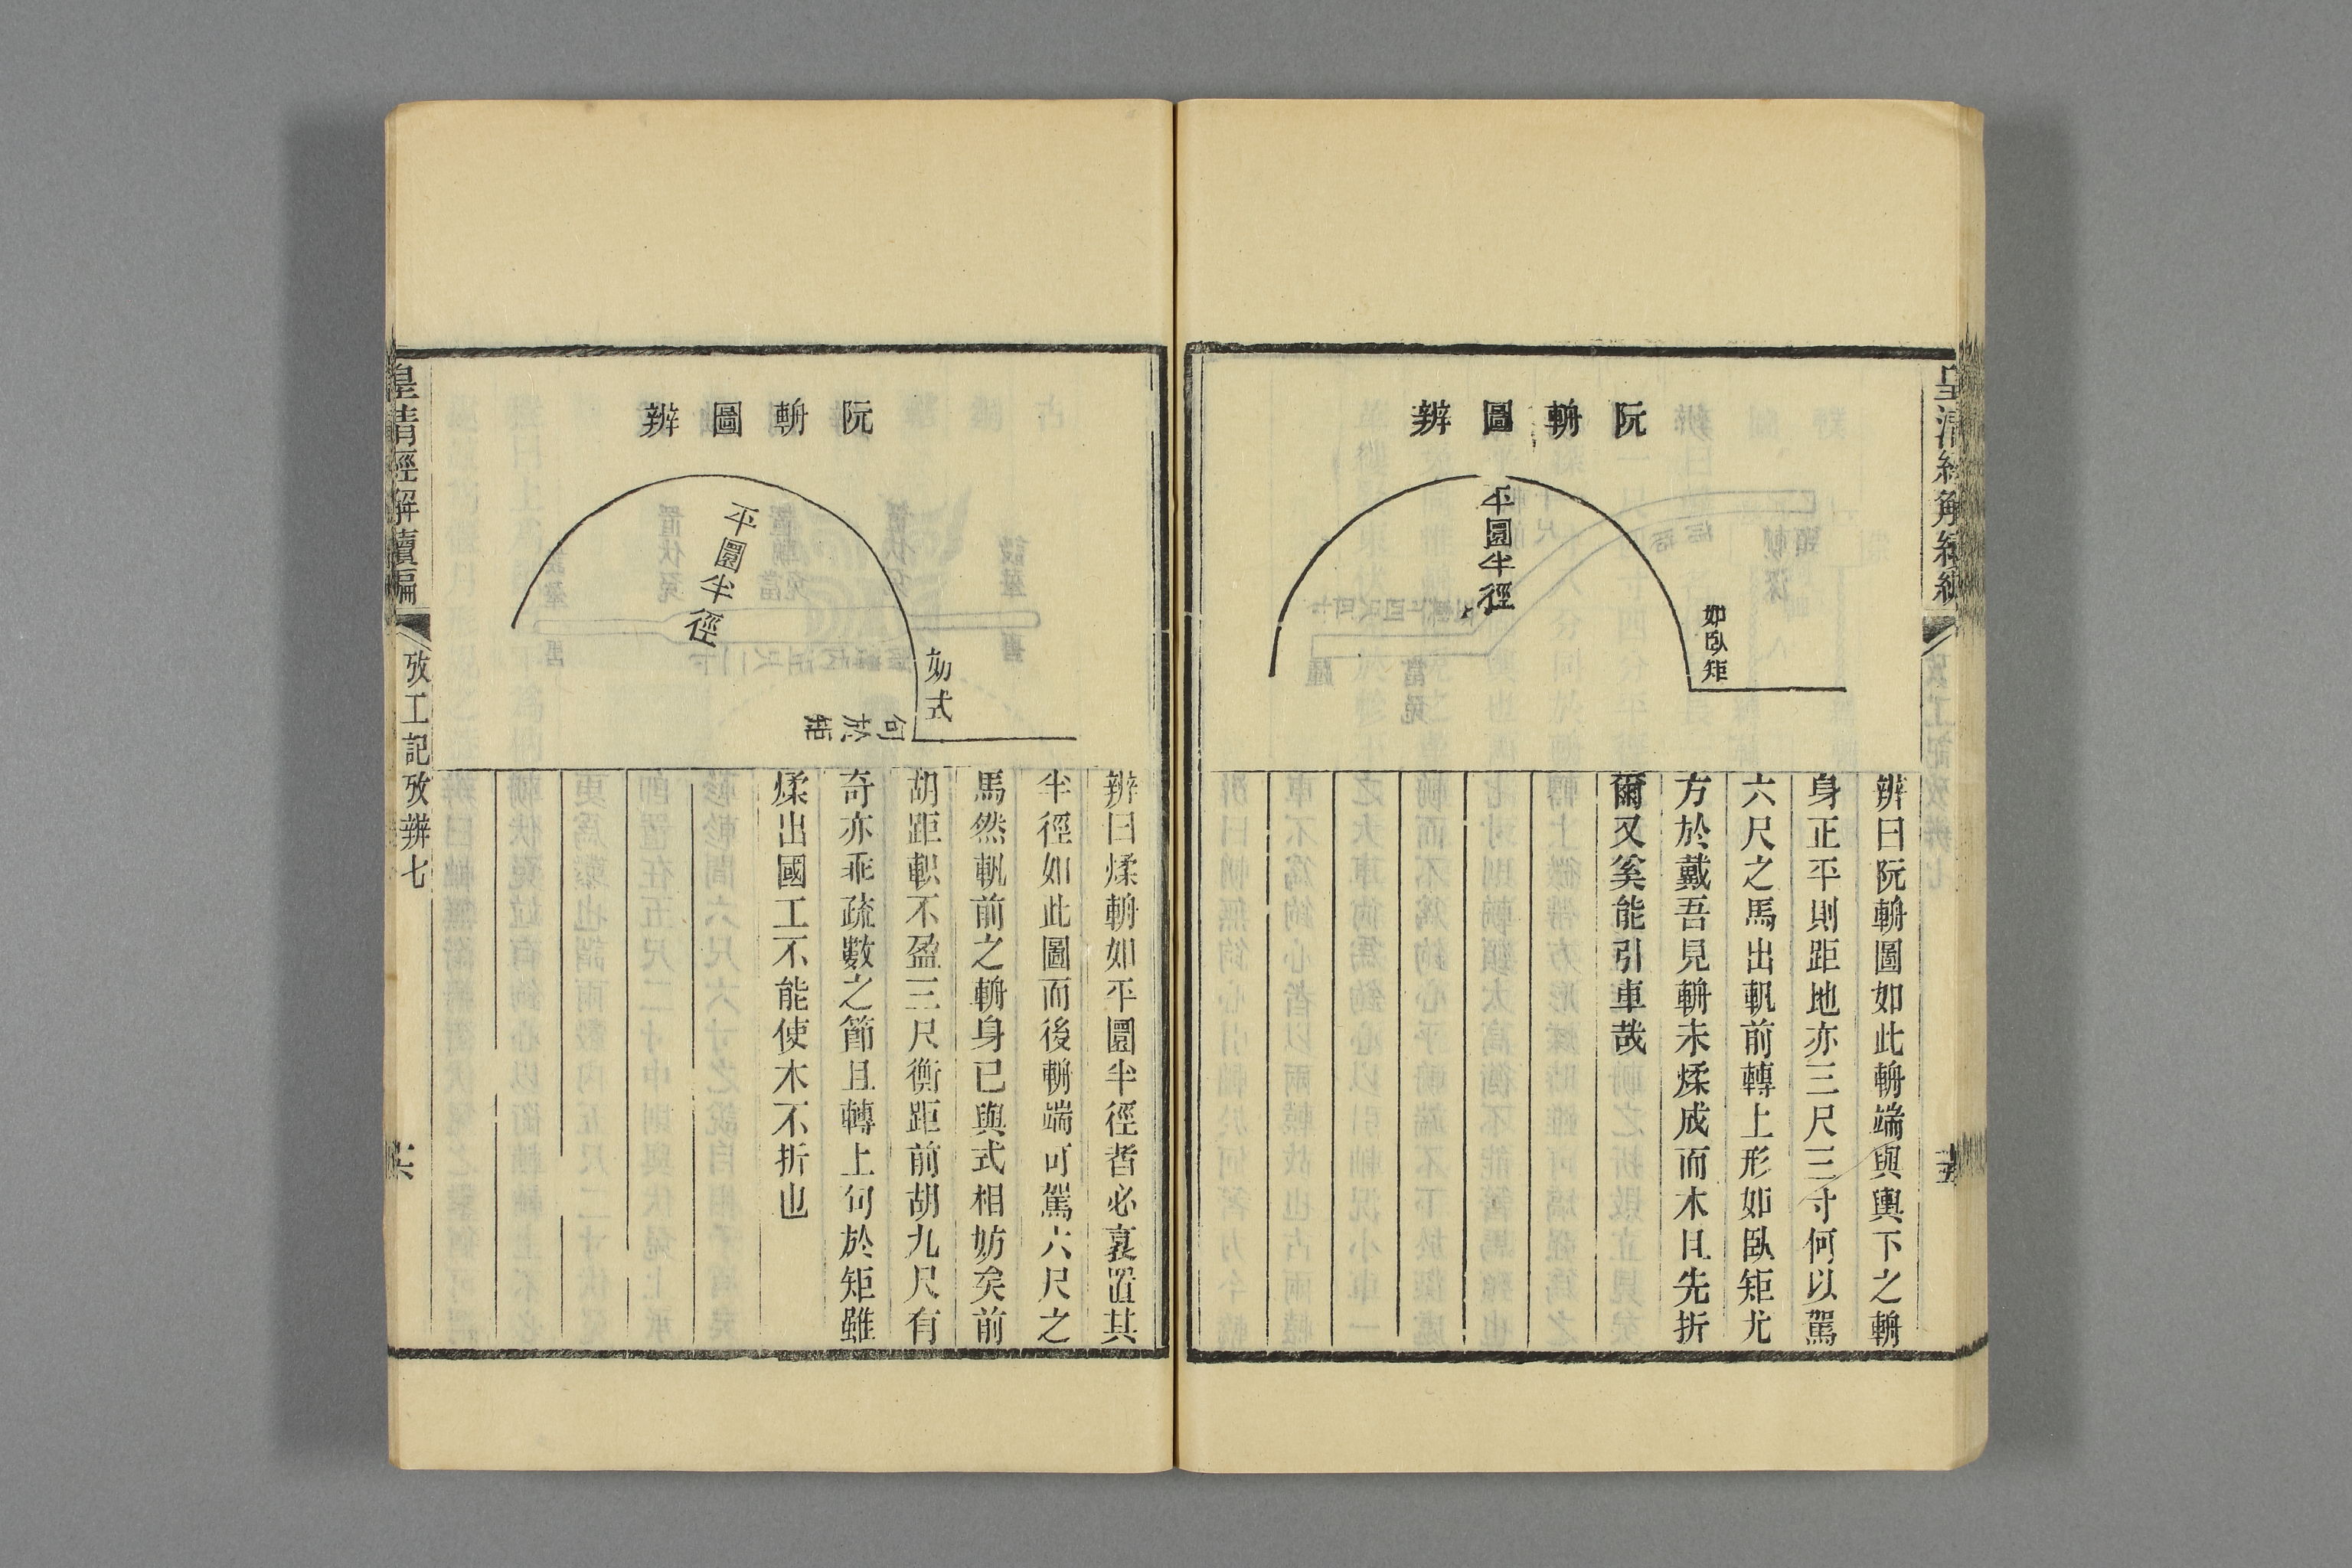 阮輈圖辨
平圜半徑
如臥矩
辨曰阮輈圖如此輈端與輿下之輈
身正平則距地亦三尺三寸何以駕
六尺之馬出軓前轉上形如臥矩尤
方於戴吾見輈未煣成而木且先折
爾又奚能引車哉
十五
阮輈圖辨
平圜半徑
妨式
句於矩
辨曰煣輈如平圜半徑者必衺置其
半徑如此圖而後輈端可駕六尺之
馬然軓前之輈身已與式相妨矣前
胡距軹不盈三尺衡距前胡九尺有
奇亦乖疏數之節且轉上句於矩雖
煣出國工不能使木不折也
皇清經解續編
攷工記攷辨七
十六